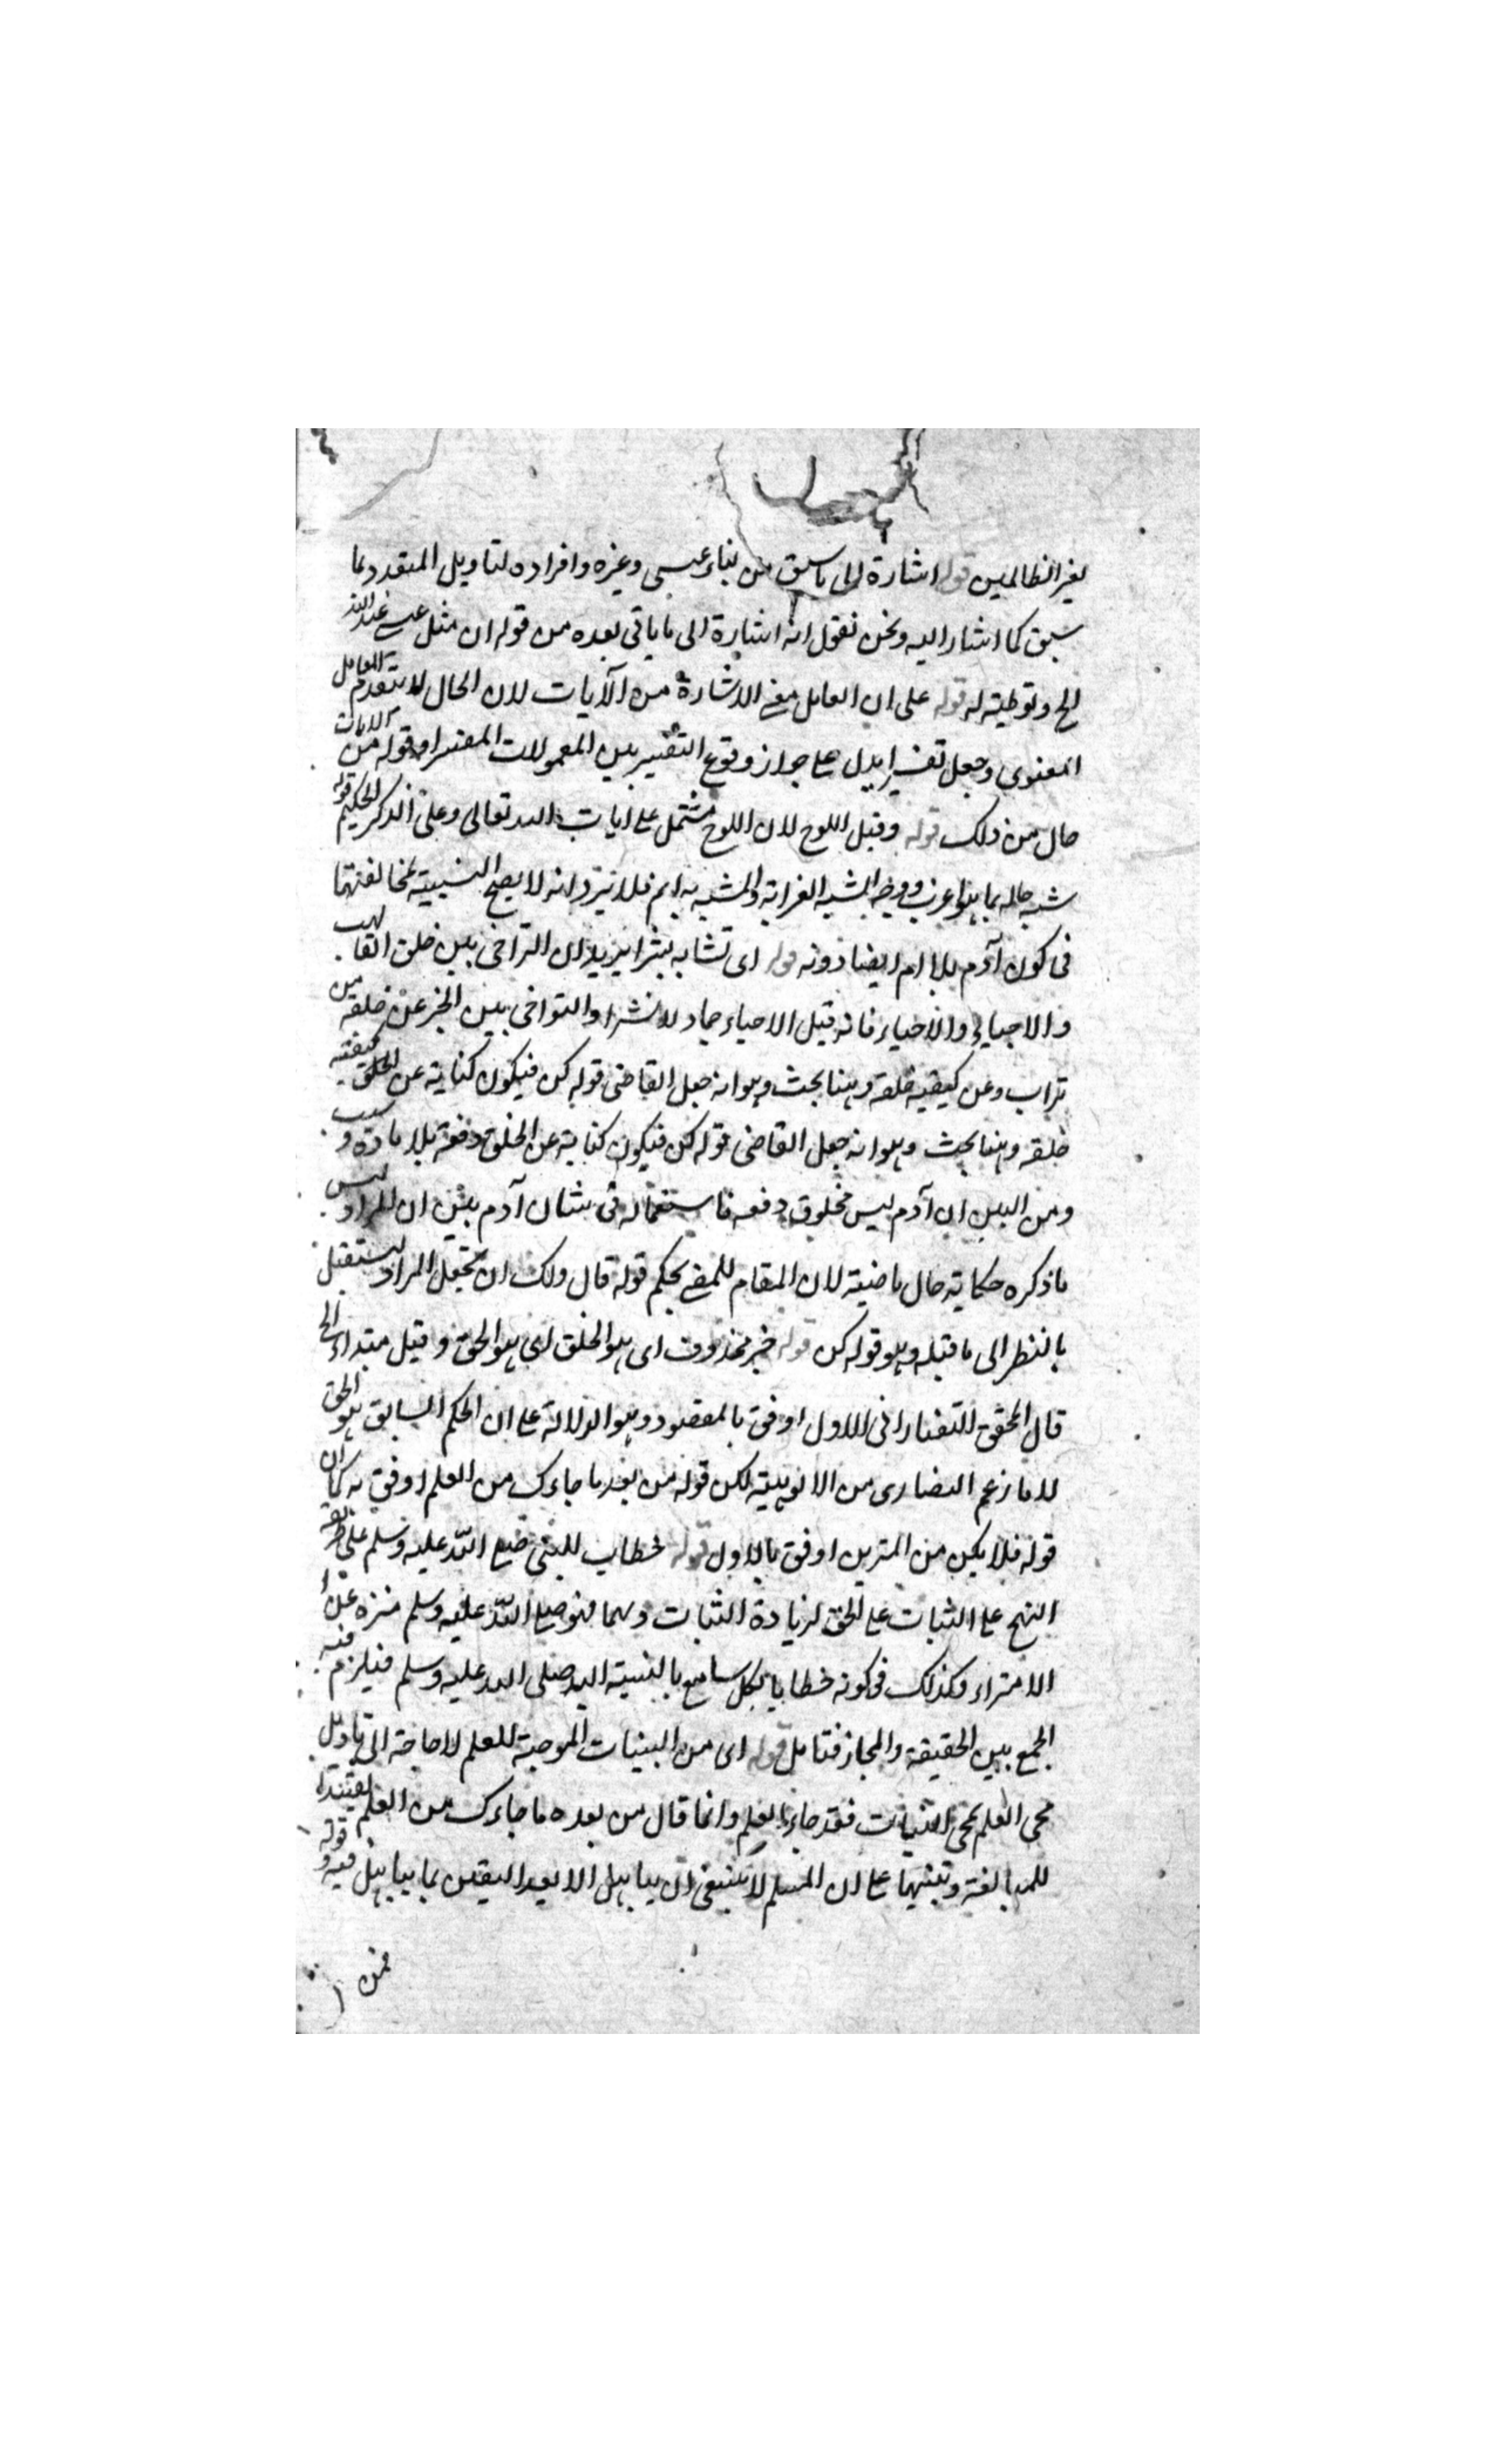 لغير الظالمين قوله اشارة الى ما سبق من نباء عيسى وغيره وافراده لتاويل المتعدد بما
سبق كما اشار اليه ونحن نقول انه اشارة الى ما ياتى بعده من قوله ان مثل عيسى عند الله
الخ وتوطية له قوله على ان العامل معنى الاشارة من الآيات لان الحال لا يتقدم العامل
المعنوى وجعل تفسيرا يدل على جواز وقوع التفسير بين المعمولات المفسر او قوله من الايات
حال من ذلك قوله وقيل اللوح لان اللوح مشتمل على ايات الله تعالى وعلى الذكر الحكيم قوله
شبه حاله بما هو اغرب ووجه الشبه الغرابة والمشبه به اتم فلا يرد انه لا يصح التشبيه لمخالفتهما
فى كون آدم بلا ام ايضا دونه قوله اى تشابه بشرا يريد ان التراخى بين خلق القالب
والاحياء فانه قبل الاحياء جماد لا بشرا والتواخى بين الخبر عن خلقه من
تراب وعن كيفية خلقه وهنا بحث وهو انه جعل القاضى قوله كن فيكون كناية عن الخلق كيفية
خلقه وهنا بحث وهو انه جعل القاضى قوله كن فيكون كناية عن الخلق دفعة بلا مادة وسبب
ومن البين ان آدم ليس مخلوق دفعه فاستعماله فى شان آدم بين ان المراد ليس
ما ذكره حكاية حال ماضية لان المقام للمضى بحكم قوله قال ولك ان تجعل المراد يستقبل
بالنظر الى ما قبله وهو قوله كن قوله خبر محذوف اى هو الخلق اى هو الحق وقيل مبتداء الخ
قال المحقق التفتازانى الاول اوفق بالمقصود وهو الدلالة على ان الحكم السابق هو الحق
لا ما زعم النصارى من الالوهيته لكن قوله من بعد ما جاءك من العلم اوفق به كما ان
قوله فلا يكن من الممترين اوفق بالاول قوله خطاب للنبى صلى الله عليه وسلم على طريقة
النهج على الثبات على الحق لزيادة الثبات وسما فهو صلى الله عليه وسلم منزه عن
الامتراء وكذلك فى كونه خطابا لكل سامع بالنسبة اليه صلى الله عليه وسلم فيلزم فيه
الجمع بين الحقيقة والمجاز فتامل قوله اى من البينات الموجبة للعلم لا حاجة الى تاويل
مجى العلم بمجى البينات فقد جاء بالعلم وانما قال من بعده ما جاءك من العلم
للمبالغة وتنبيها على ان المسلم لا ينبغى ان يباهل الا بعد اليقين بما يباهل فيه و قوله
فمن